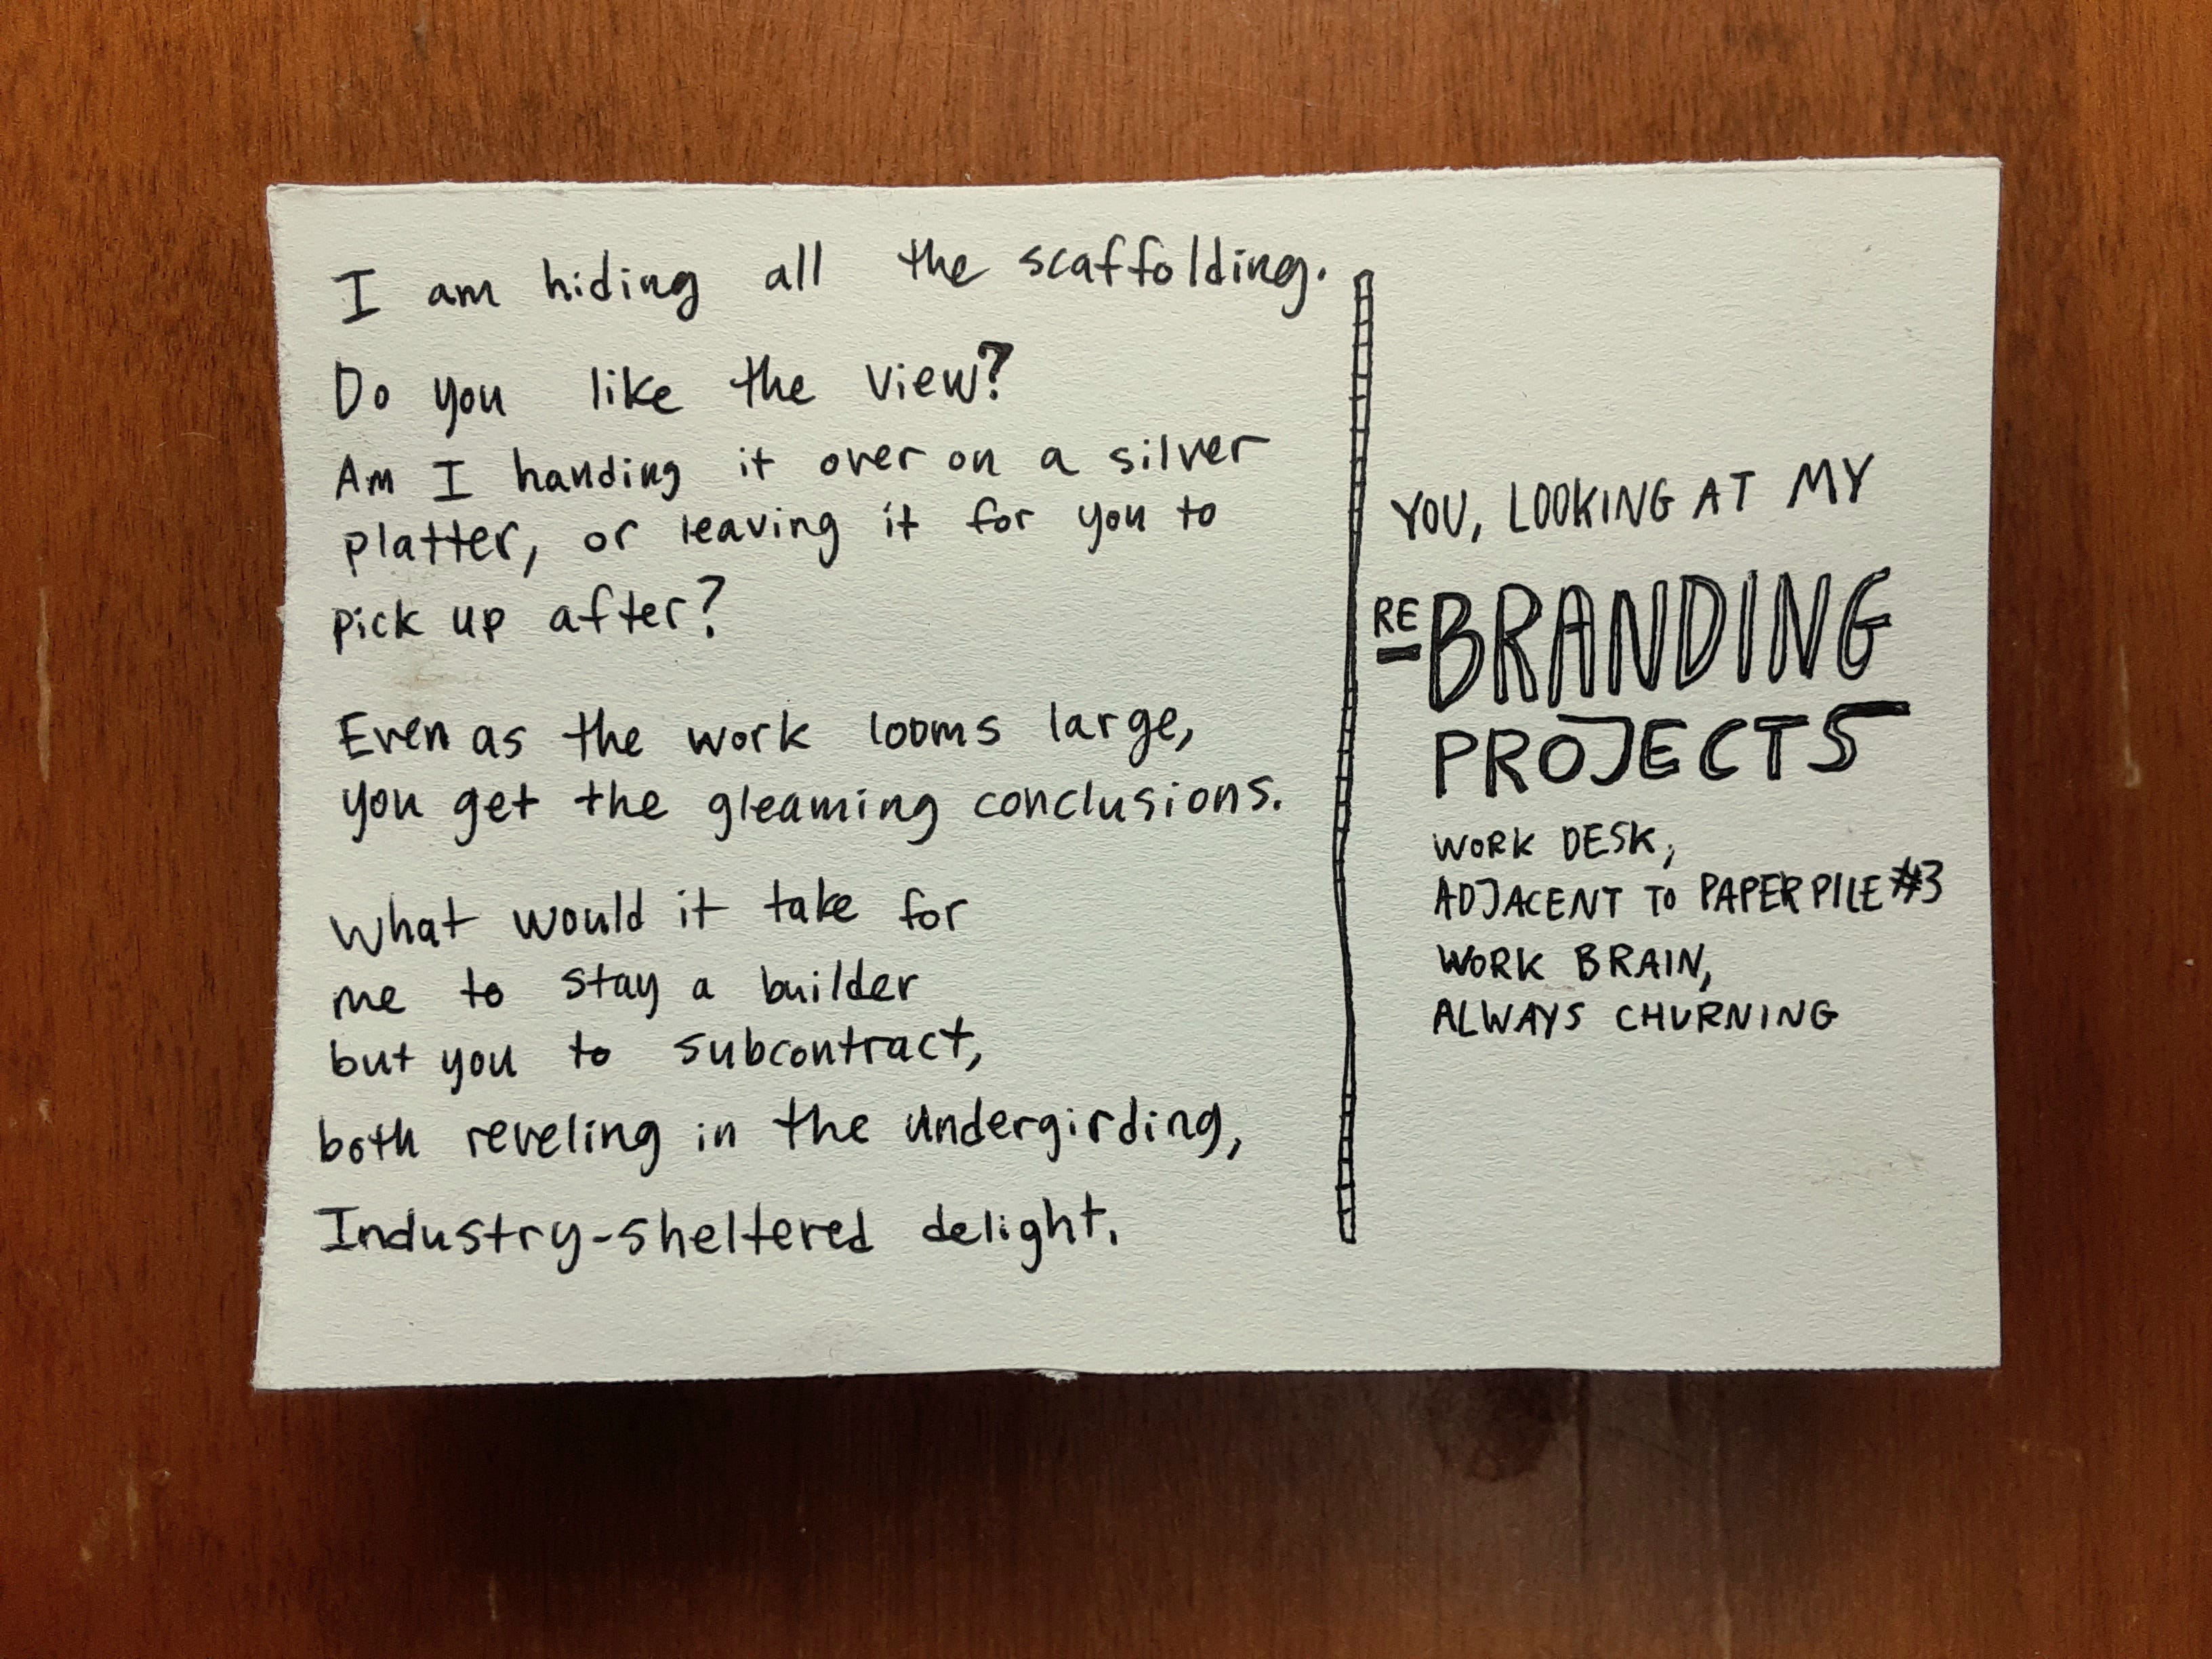 I am hiding all the scaffolding.
Do you like the view?
Am I handing it over on a silver
platter, or leaving it for you to
pick up after?
Even as the work looms large,
you get the gleaming conclusions.
What would it take for
me to stay a builder
but you to subcontract,
both reveling in the undergirding,
Industry-sheltered delight.
YOU, LOOKING AT MY
RE-BRANDING
PROJECTS
WORK DESK,
ADJACENT TO PAPER PILE #3
WORK BRAIN,
ALWAYS CHURNING